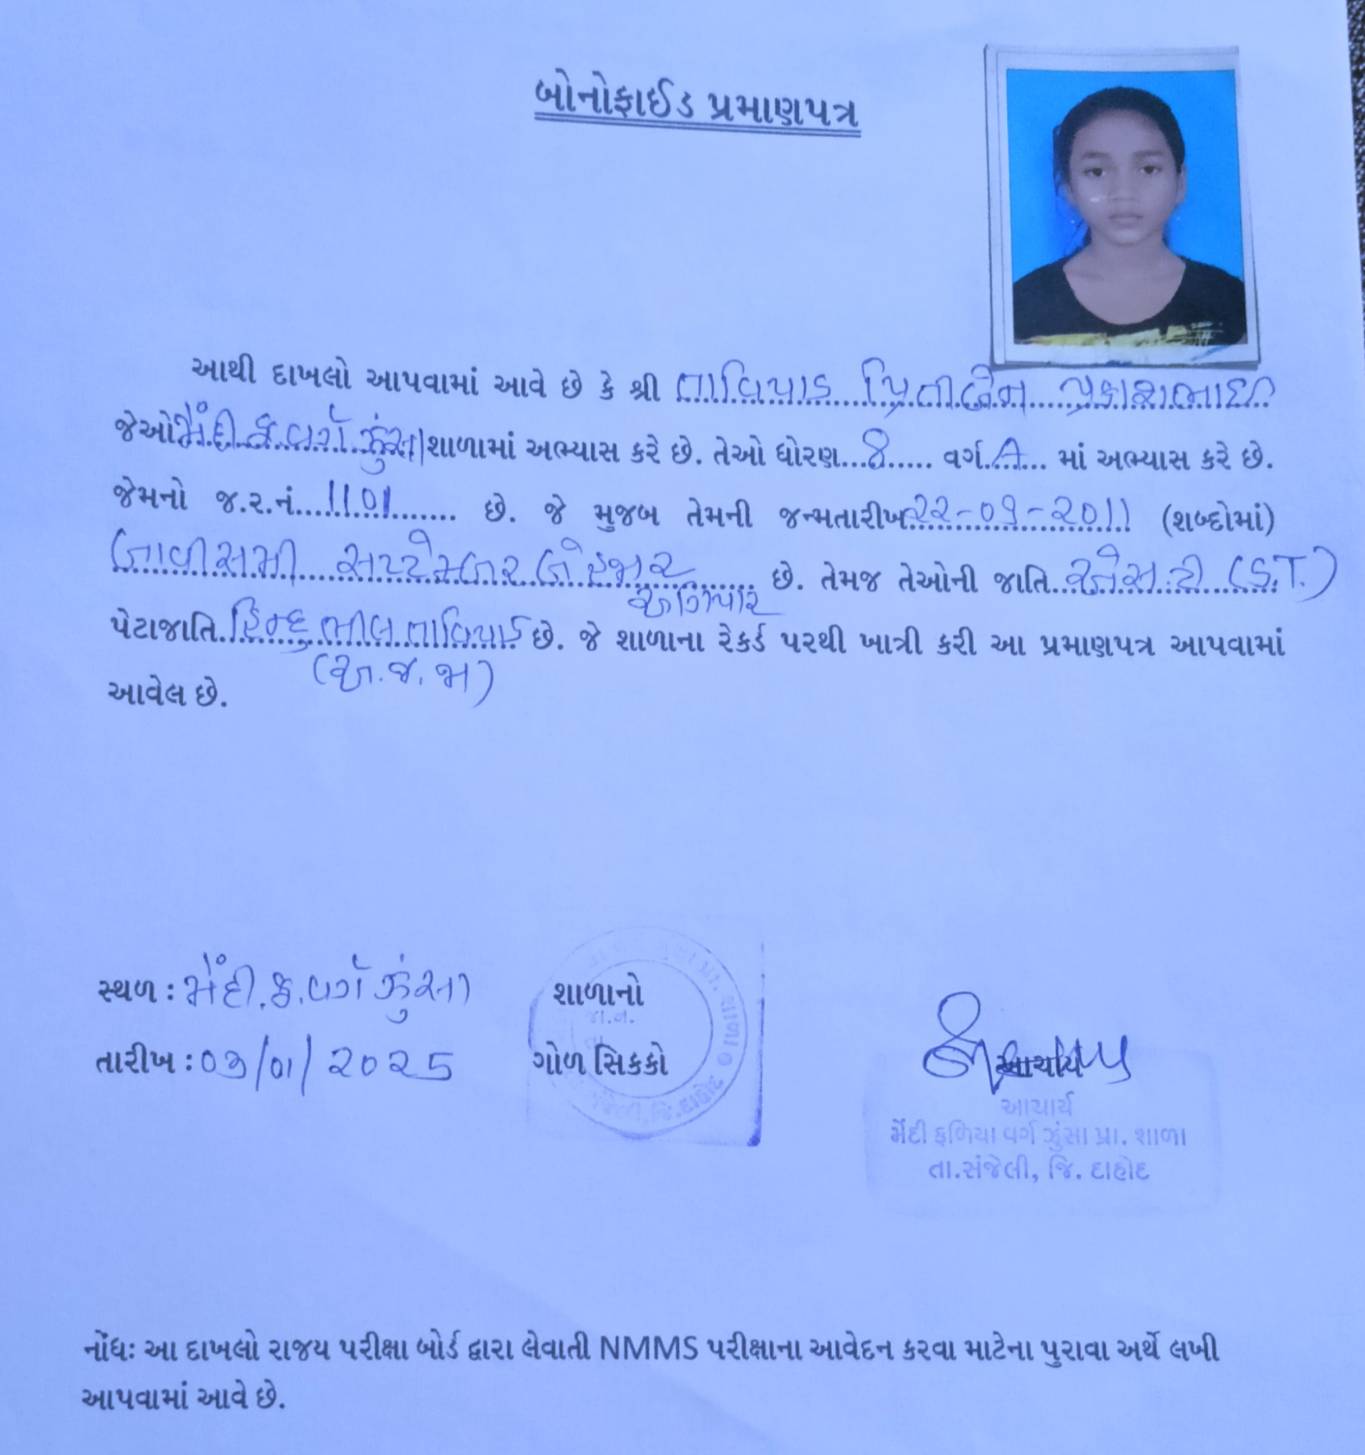 બોનોફાઈડ પ્રમાણપત્ર
આથી દાખલો આપવામાં આવે છે કે શ્રી તાવિયાડ પ્રિતીબેન પ્રકાશભાઈ
જેઓ મેંદી ફ.વર્ગ ઝુંસા શાળામાં અભ્યાસ કરે છે. તેઓ ધોરણ...8..... વર્ગ..A... માં અભ્યાસ કરે છે.
જેમનો જ.ર.નં....1101............ છે. જે મુજબ તેમની જન્મતારીખ 22-09-2011 (શબ્દોમાં)
બાવીસમી સપ્ટેમ્બર બે હજાર છે. તેમજ તેઓની જાતિ..એસ.ટી (S.T.)
અગિયાર
પેટાજાતિ.હિન્દુ ભીલ તાવિયાડ છે. જે શાળાના રેકર્ડ પરથી ખાત્રી કરી આ પ્રમાણપત્ર આપવામાં
(અ.જ.જા)
આવેલ છે.
સ્થળ : મેંદી.ફ.વર્ગ ઝુંસા
શાળાનો
તારીખ : 03/01/2025
ગોળ સિક્કો
આચાર્ય
આચાર્ય
મેંદી ફળિયા વર્ગ ઝુંસા પ્રા. શાળા
તા.સંજેલી, જિ. દાહોદ
નોંધઃ આ દાખલો રાજય પરીક્ષા બોર્ડ દ્વારા લેવાતી NMMS પરીક્ષાના આવેદન કરવા માટેના પુરાવા અર્થે લખી
આપવામાં આવે છે.